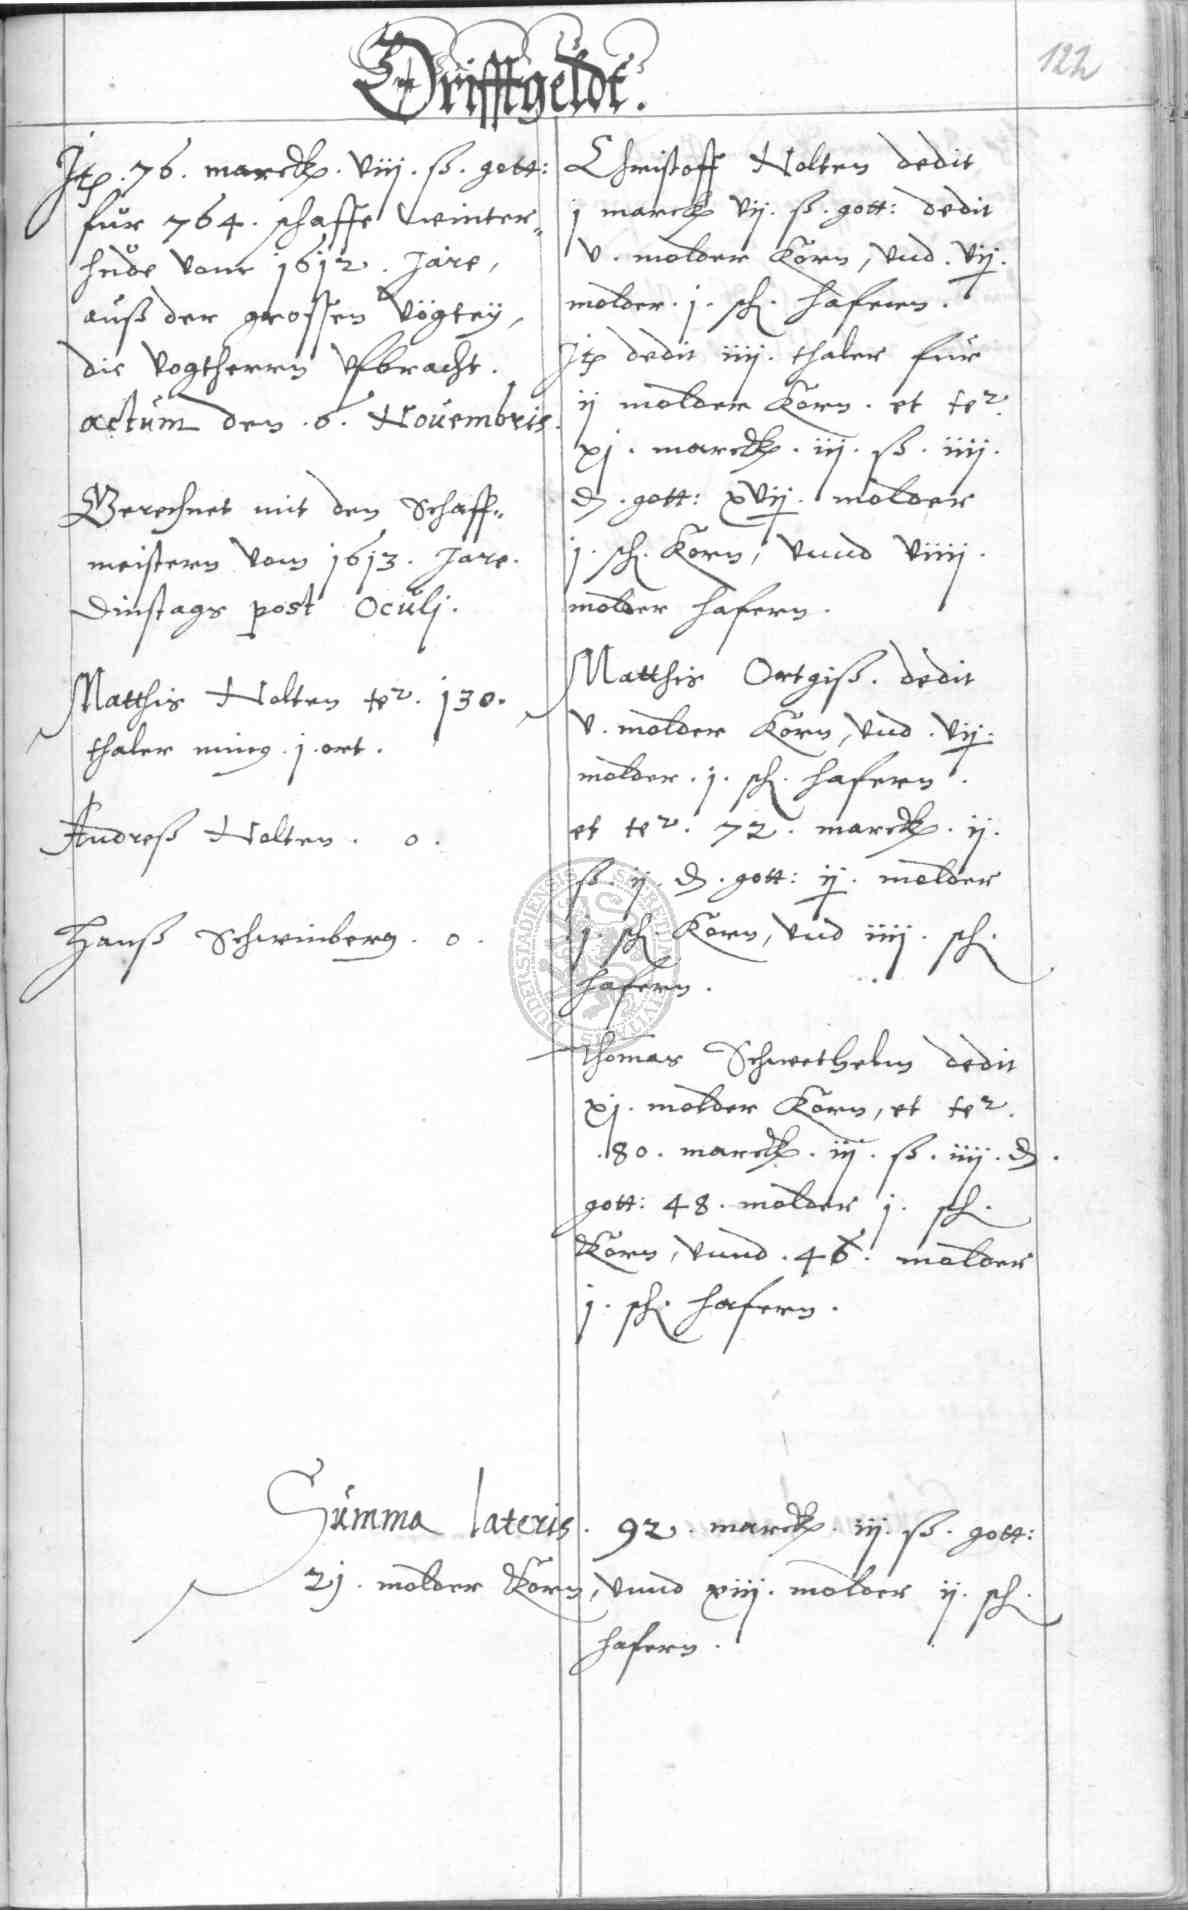 Drifftgeldt.
122
Itp. 76. marck. viij. ß. gott:
für 764. schaffe winter„
hude vom 1612. Jare,
auß der grossen Vögtey,
die Vogtherrn vfbracht.
actum den .6. Novembris.
Gerechnet mit den Schaff„
meistern vom 1613. Jare.
Dinstags post Oculj.
Matthis Nolten ter. 130.
thaler minus .j. ort.
Andreß Nolten. o.
Hanß Schwinberg. o.
Christoff Nolten dedit
j marck vij. ß. gott: dedit
v. molder Korn, vnd .vij.
molder .j. sch. hafern.
Itp dedit iiij. thaler für
ij molder Korn. et ter.
xj. marck. iij. ß. iiij.
d. gott: xvij. molder
j. sch. Korn, vnnd viiij.
molder hafern.
Matthis Ortgiß. dedit
v. molder Korn, vnd .vij.
molder .j. sch. hafern.
et ter. 72. marck. ij.
ß. ij. d. gott: ij. molder
j. sch. Korn, vnd iiij. sch.
hafern.
Thomas Schwethelm dedit
xj. molder Korn, et ter.
.80. marck. iij. ß. iiij. d.
gott: 48. molder j. sch.
Korn, vnnd .46. molder
j. sch. hafern.
Summa lateris. 92. marck. iij. ß. gott:
21. molder Korn, vnnd xiij. molder ij. sch.
hafern.